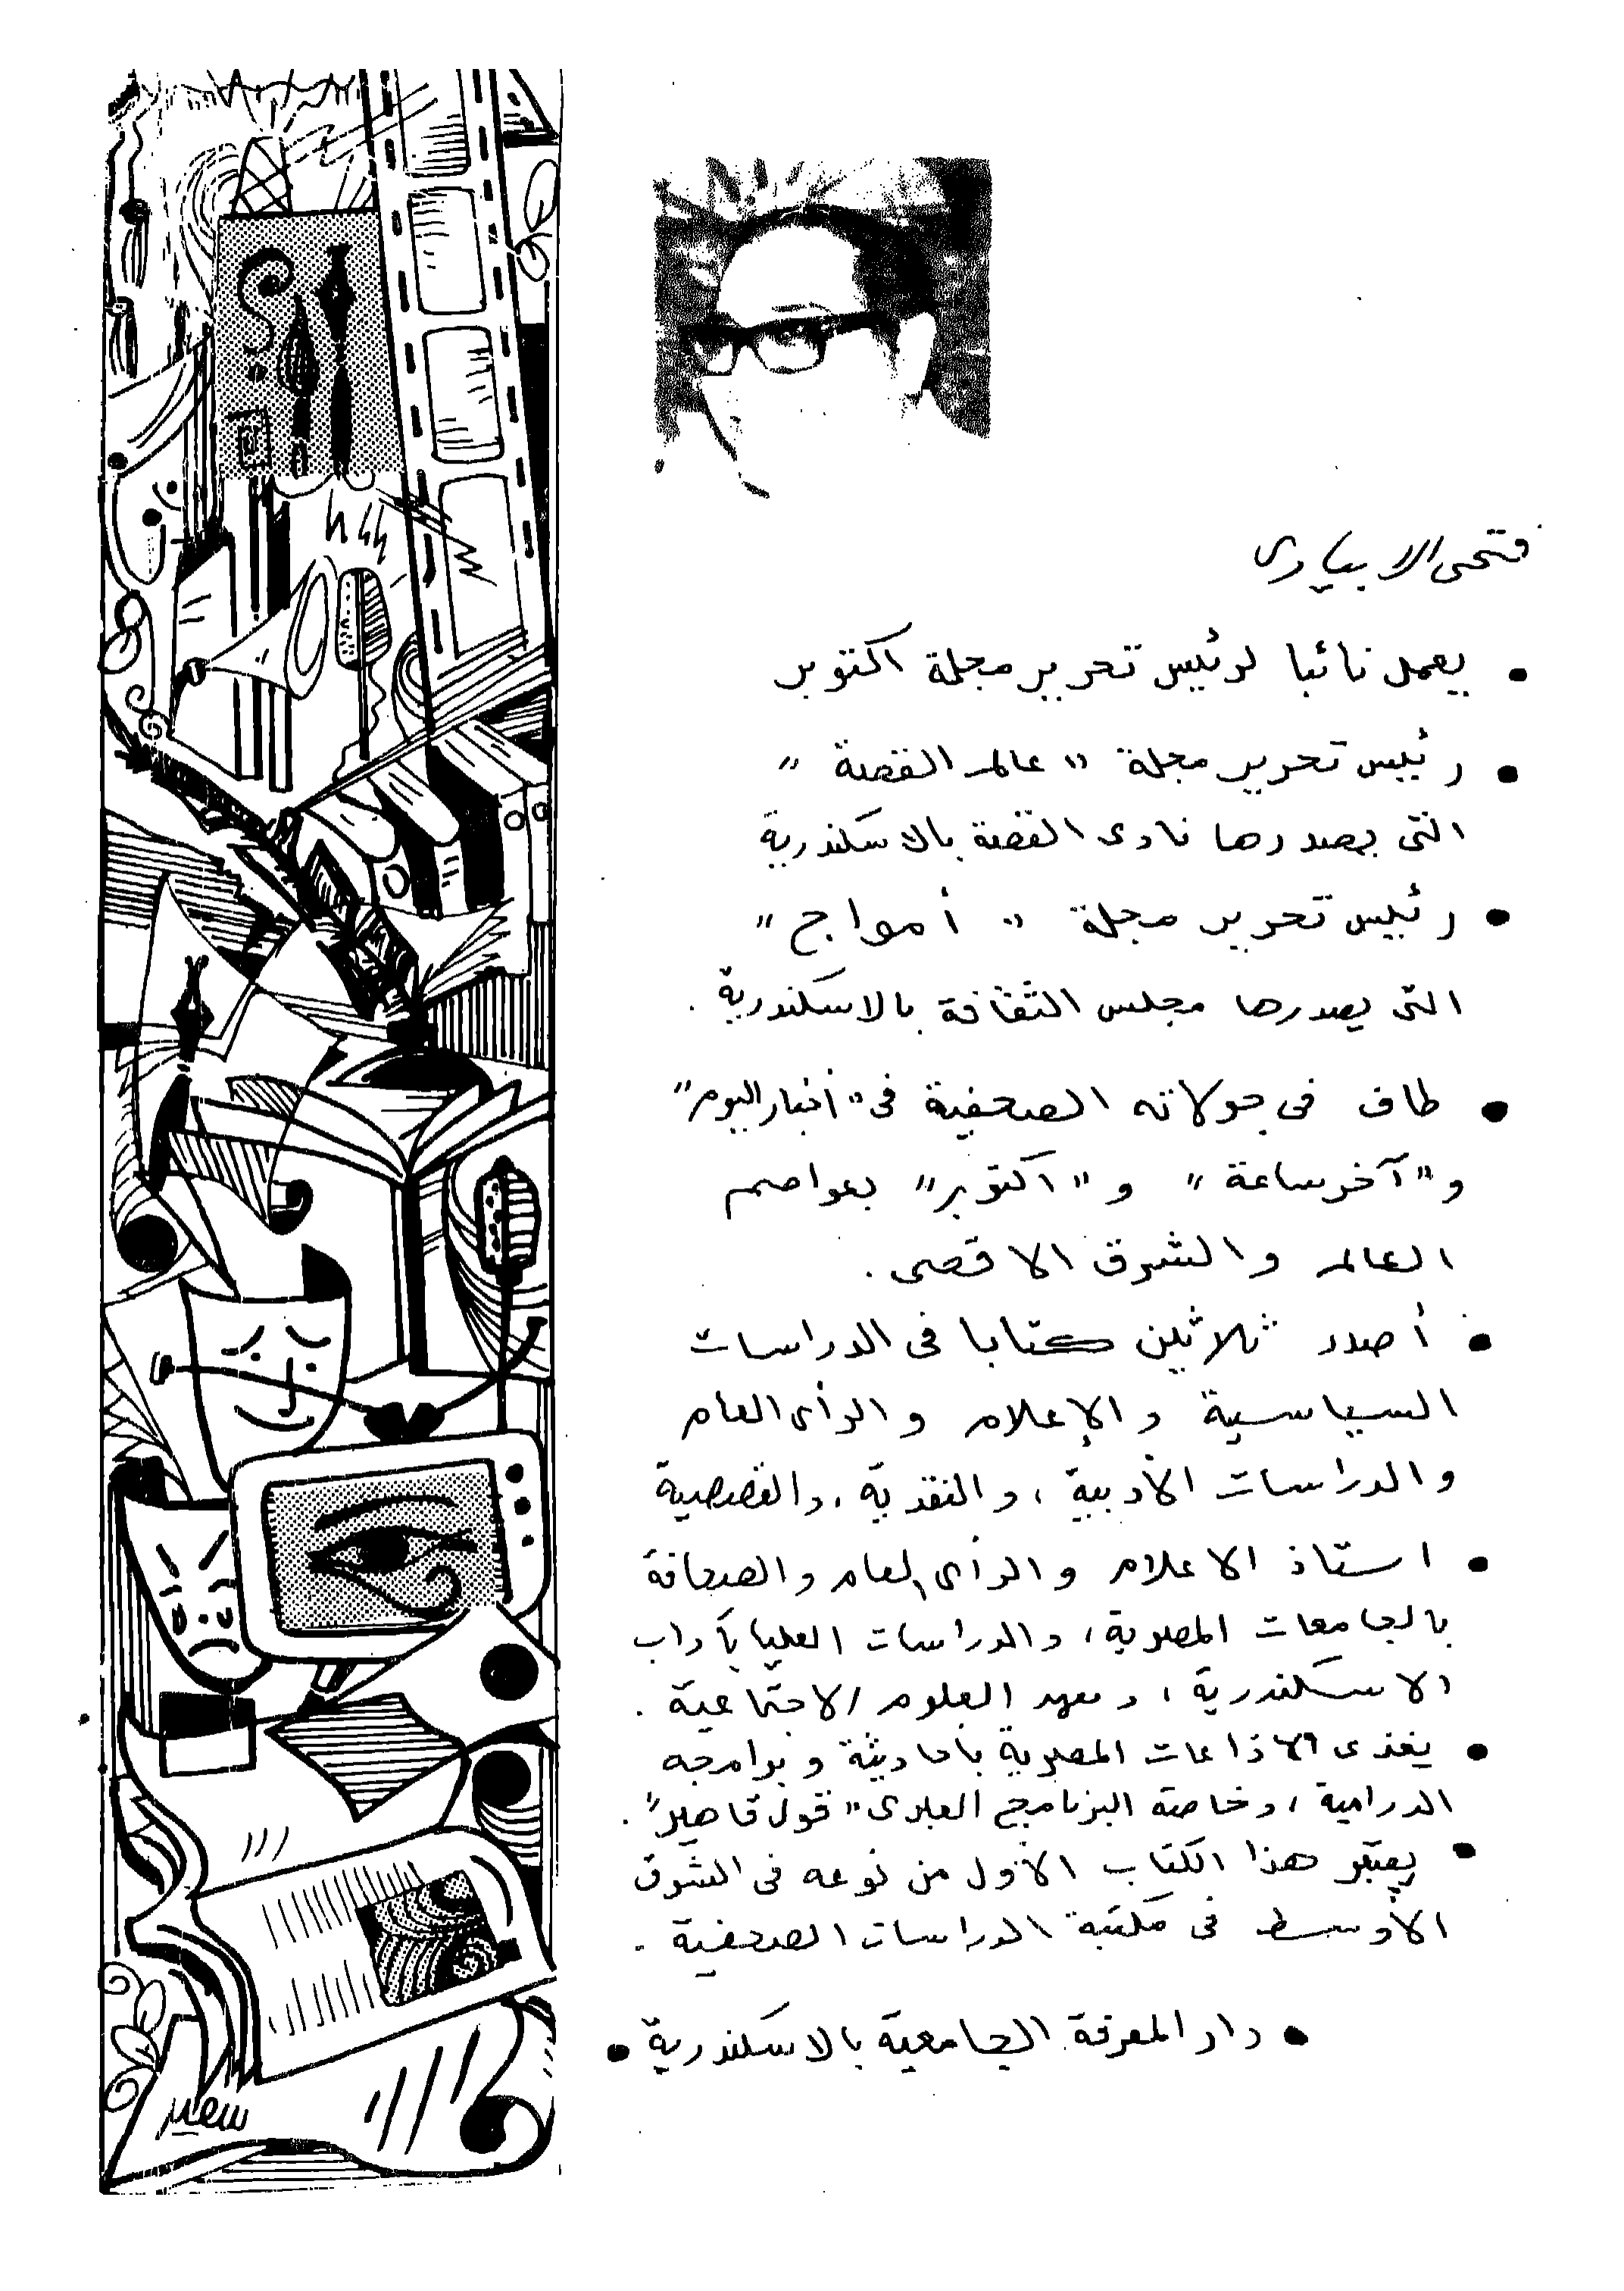 فتحى الابيارى
• يعمل نائبا لرئيس تحرير مجلة اكتوبر
• رئيس تحرير مجلة " عالم القصة "
التى يصدرها نادى القصة بالاسكندرية
• رئيس تحرير مجلة " أمواج "
التى يصدرها مجلس الثقافة بالاسكندرية .
• طاف فى جولاته الصحفية فى " أخبار اليوم "
و " آخر ساعة " و " اكتوبر " بعواصم
العالم والشرق الاقصى .
• أصدر ثلاثين كتابا فى الدراسات
السياسية والإعلام والرأى العام
والدراسات الأدبية ، والنقدية ، والقصصية
• استاذ الاعلام والرأى العام والصحافة
بالجامعات المصرية ، والدراسات العليا بآداب
الاسكندرية ، ومعهد العلوم الاجتماعية .
• يغذى الاذاعات المصرية بأحاديثة وبرامجه
الدرامية ، وخاصة البرنامج العبرى " قول قاهير " .
• يعتبر هذا الكتاب الأول من نوعه فى الشرق
الأوسط فى مكتبة الدراسات الصحفية .
• دار المعرفة الجامعية بالاسكندرية •